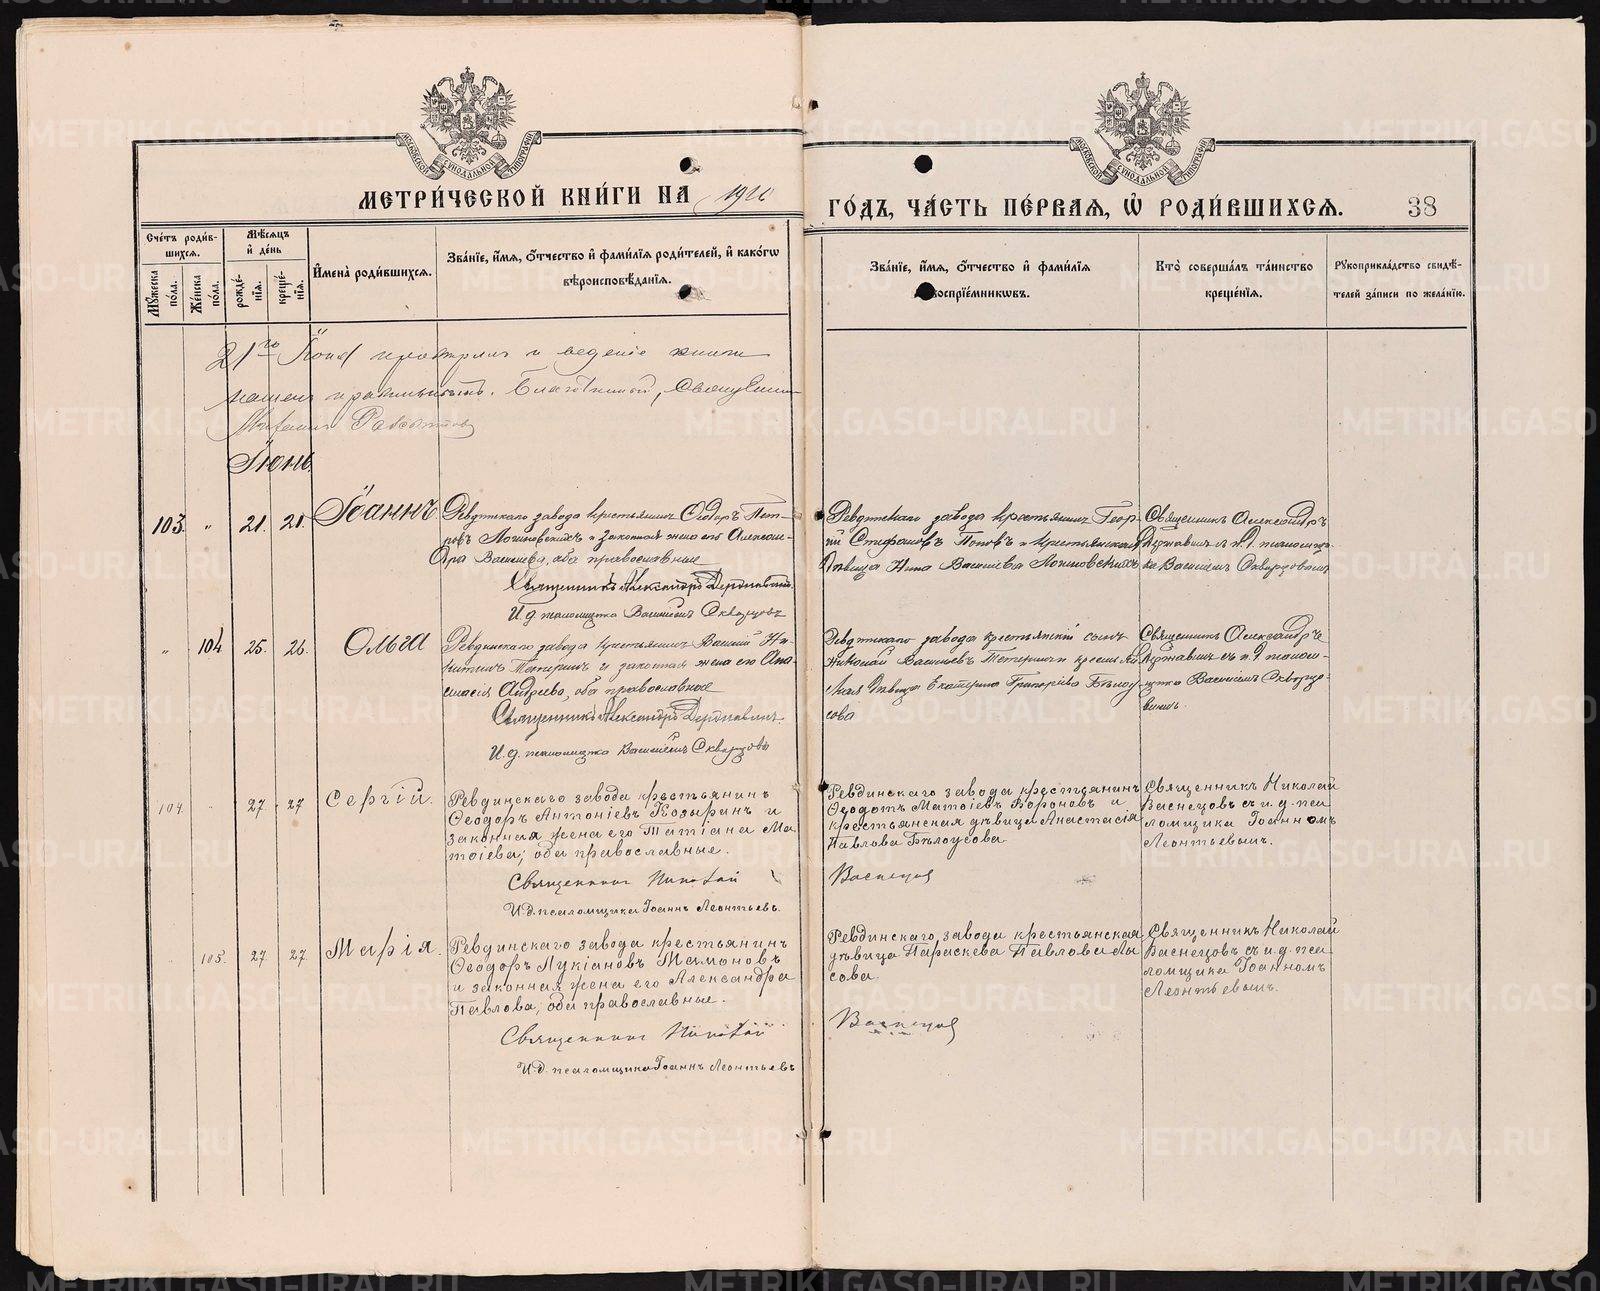 МЕТРИ́ЧЕСКОЙ КНИ́ГИ НА
ГО́ДЪ, ЧА́СТЬ ПЕ́РВАЯ, Ѡ РОДИ́ВШИХСЯ.
38
Сче́тъ роди́в-
шихся.
Му́жеска по́ла.
Же́нска по́ла.
Мѣ́сяцъ и де́нь
рожде́нїя.
креще́нїя.
И҆мена̀ роди́вшихся.
Зва́нїе, и҆́мя, ѻ҆́тчество и҆ фами́лїя роди́телей, и҆ како́гѡ
вѣроисповѣ́данїя.
Зва́нїе, и҆́мя, ѻ҆́тчество и҆ фами́лїя
воспрїе́мникѡвъ.
Кто̀ соверша́лъ та́инство
креще́нїя.
Рукоприкла́дство свидѣ́-
телей за́писи по жела́нїю.
Іюнь.
103
21.
21.
Іоаннъ.
Ревдинскаго завода крестьянинъ Ѳеодоръ Пет-
ровъ Логиновскихъ и законная жена его Алексан-
дра Васильева, оба православные
Священникъ Александръ Державинъ.
И. д. псаломщика Василій Скворцовъ
Ревдинскаго завода крестьянинъ Геор-
гій Стефановъ Поповъ и крестьянская
дѣвица Нина Васильева Логиновскихъ
Священникъ Александръ
Державинъ съ и. д. псаломщи-
ка Василіемъ Скворцовымъ
104
25.
26.
Ольга
Ревдинскаго завода крестьянинъ Василій Ни-
китинъ и законная жена его Ана-
стасія Андреева, оба православные
Священникъ Александръ Державинъ.
И. д. псаломщика Василій Скворцовъ
Ревдинскаго завода крестьянскій сынъ
Николай Васильевъ и крестьян-
ская дѣвица Екатерина Григорьева Бѣлоу-
сова
Священникъ Александръ
Державинъ съ и. д. псалом-
щика Василіемъ Скворцо-
вымъ.
104
27
27
Сергій.
Ревдинскаго завода крестьянинъ
Ѳеодоръ Антоніевъ Козыринъ и
законная жена его Татіана Ма-
тоіева; оба православные.
Священникъ Николай
И. д. псаломщика Іоаннъ Леонтьевъ.
Ревдинскаго завода крестьянинъ
Ѳеодотъ Матоіевъ Вороновъ и
крестьянская дѣвица Анастасія
Павлова Бѣлоусова
Васнецовъ
Священникъ Николай
Васнецовъ съ и. д. пса-
ломщика Іоанномъ
Леонтьевымъ.
105.
27
27
Марія.
Ревдинскаго завода крестьянинъ
Ѳеодоръ Лукіановъ Мамоновъ
и законная жена его Александра
Павлова; оба православные.
Священникъ Николай
И. д. псаломщика Іоаннъ Леонтьевъ
Ревдинскаго завода крестьянская
дѣвица Параскева Павлова Лы-
сова.
Васнецовъ
Священникъ Николай
Васнецовъ съ и. д. пса-
ломщика Іоанномъ
Леонтьевымъ.
METRIKI.GASO-URAL.RU